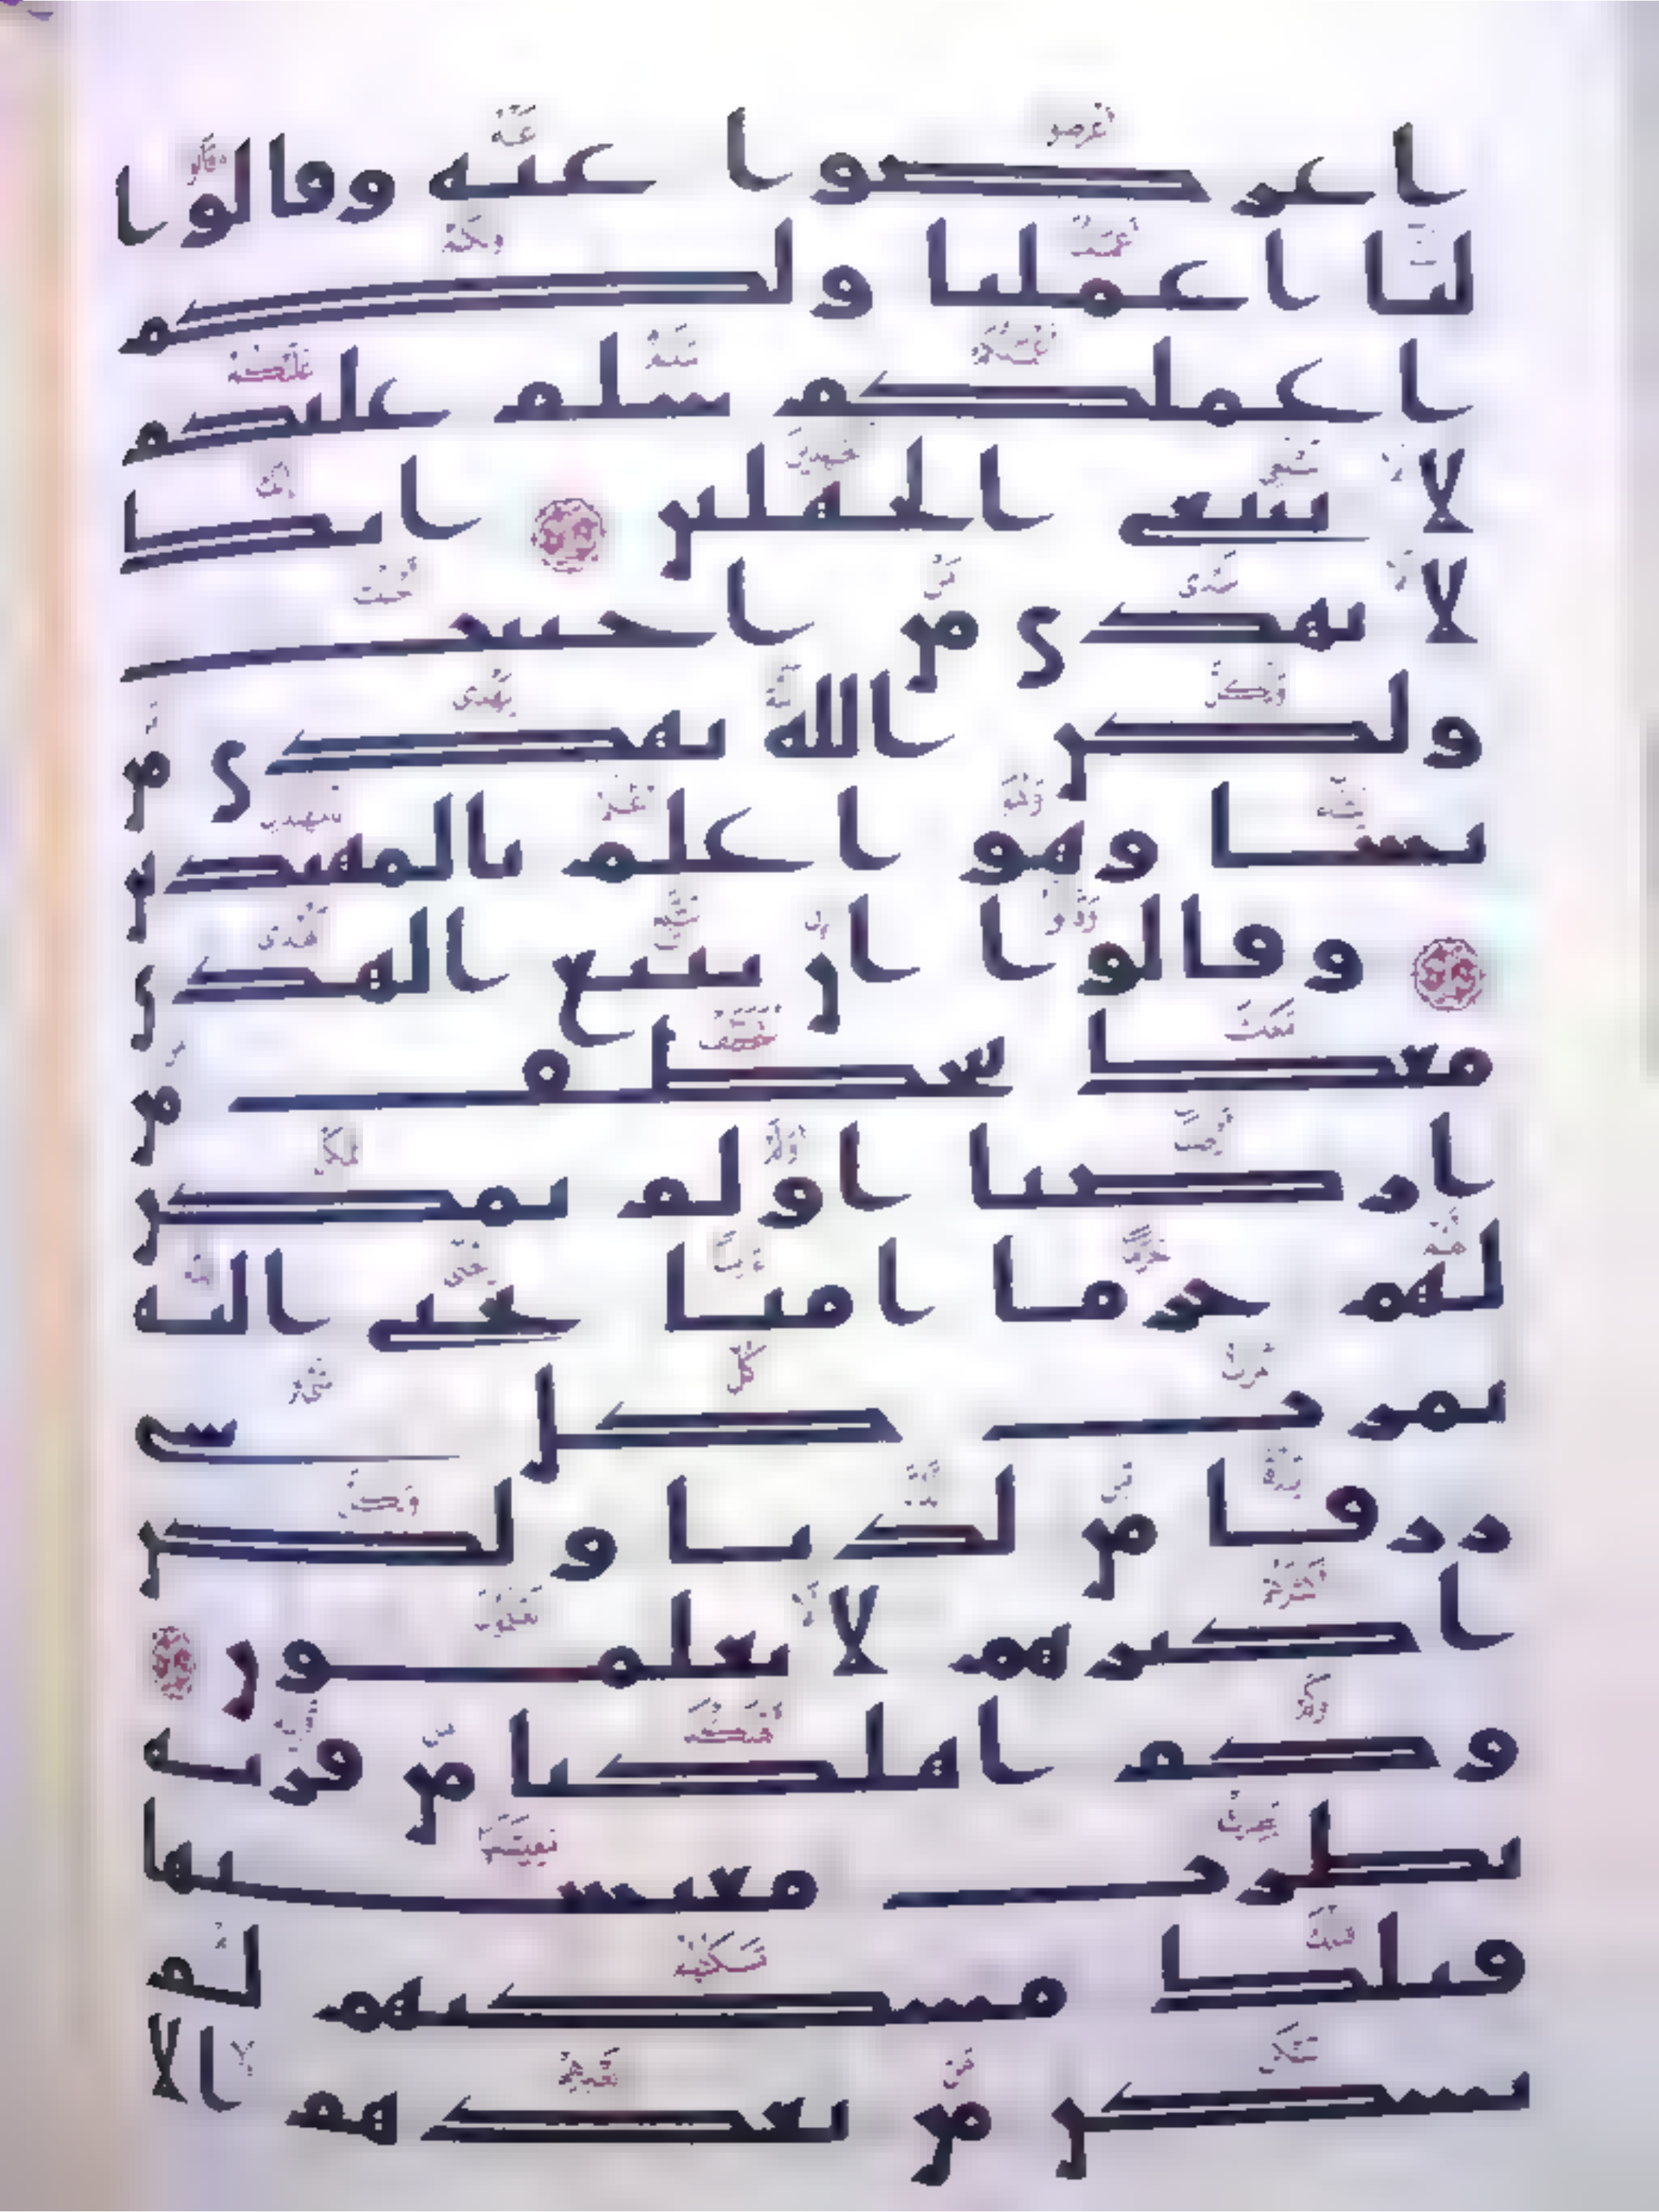 اعرضوا عنه وقالوا
لنا اعملنا ولكم
اعملكم سلم عليكم
لا نبتغى الجهلين انك
لا تهدى من احببت
ولكن الله يهدى من
يشا وهو اعلم بالمهتدين
وقالوا ان نتبع الهدى
معك نتخطف من
ارضنا اولم نمكن
لهم حرما امنا يجبى اليه
ثمرت كل شى
رزقا من لدنا ولكن
اكثرهم لا يعلمون
وكم اهلكنا من قرية
بطرت معيشتها
فتلك مسكنهم لم
تسكن من بعدهم الا